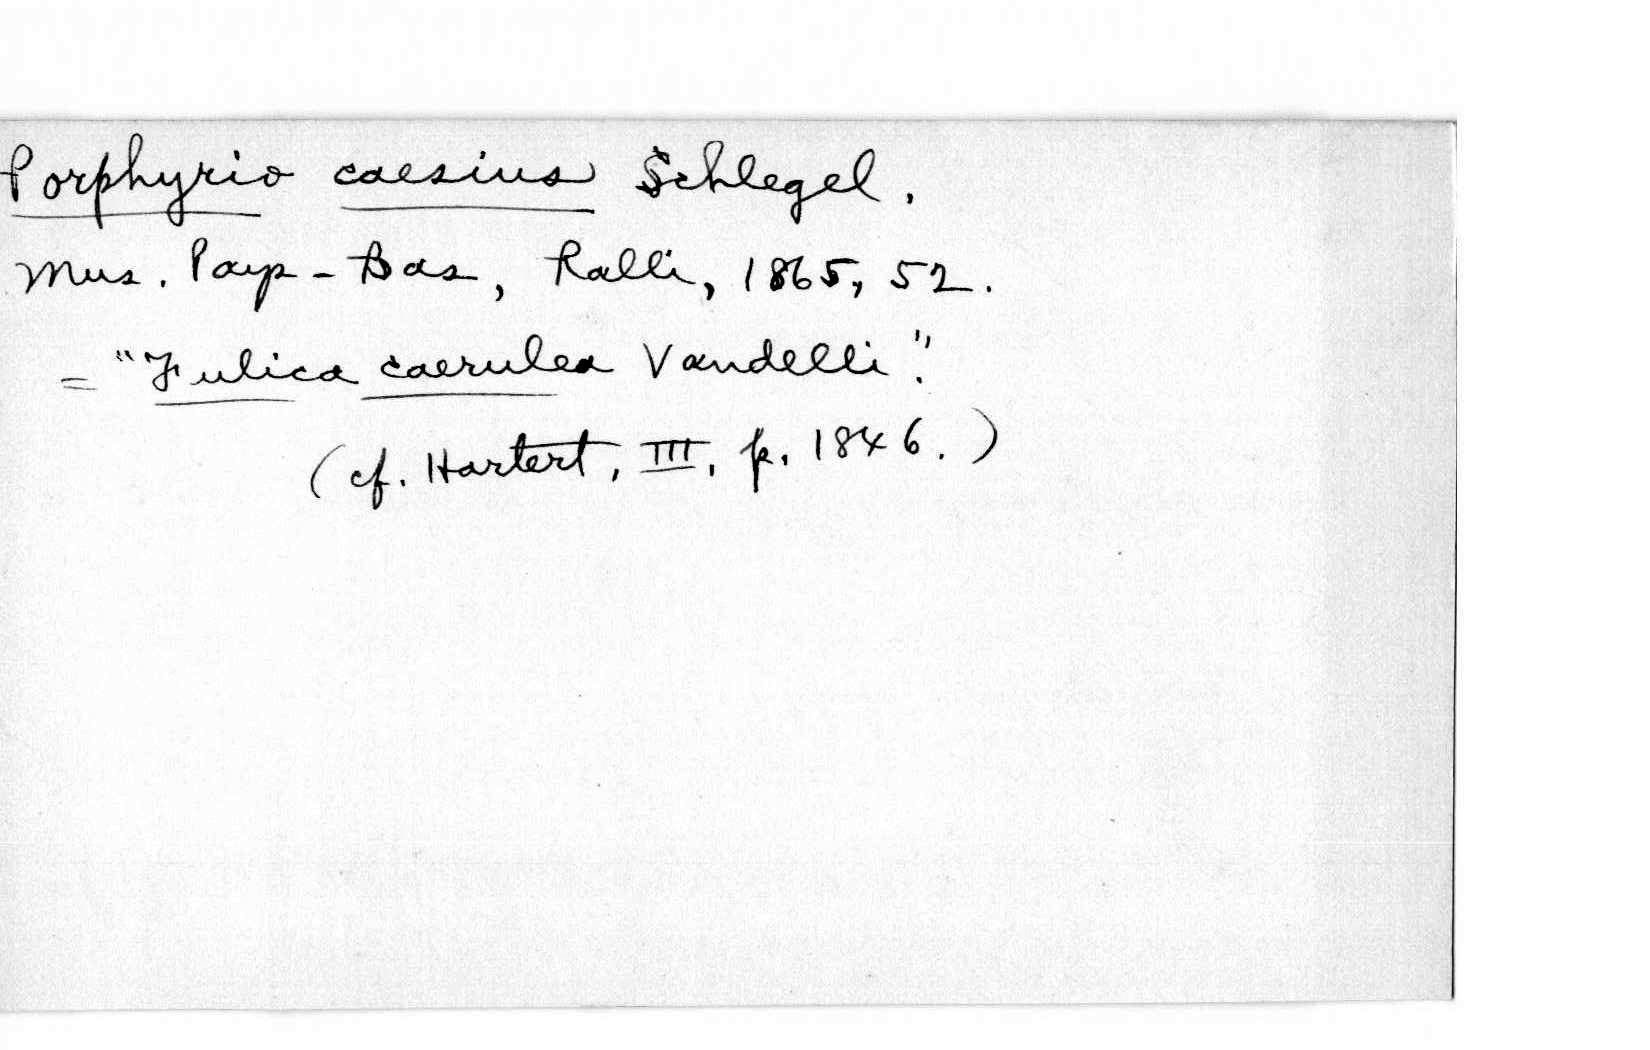 Porphyrio caesius Schlegel.
Mus. Pays-Bas, Ralli, 1865, 52.
= "Fulica caerulea Vandelli".
(cf. Hartert, III, p. 1846.)